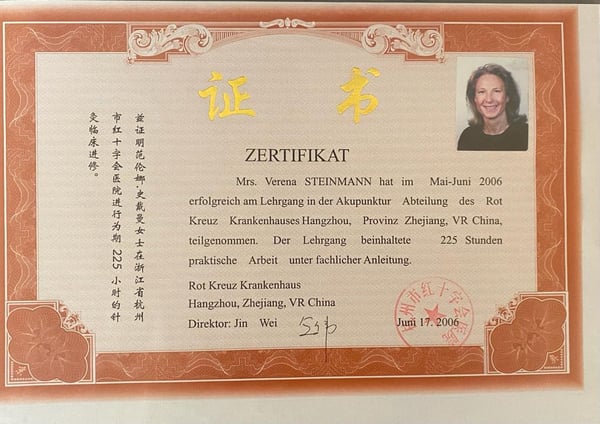 证书
ZERTIFIKAT
Mrs. Verena STEINMANN hat im Mai-Juni 2006
erfolgreich am Lehrgang in der Akupunktur Abteilung des Rot
Kreuz Krankenhauses Hangzhou, Provinz Zhejiang, VR China,
teilgenommen. Der Lehrgang beinhaltete 225 Stunden
praktische Arbeit unter fachlicher Anleitung.
Rot Kreuz Krankenhaus
Hangzhou, Zhejiang, VR China
Direktor: Jin Wei
Juni 17. 2006
杭州市红十字会医院
兹证明范伦娜·史戴曼女士在浙江省杭州
市红十字会医院进行为期 225 小时的针
灸临床进修。